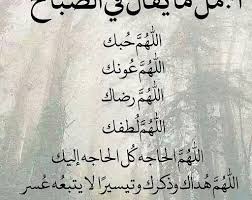 أجمل ما يقال في الصباح
اللهُمَّ حُبك
اللهُمَّ عَونك
اللهُمَّ رضاك
اللهُمَّ لُطفك
اللهُمَّ الحاجه كُل الحاجه إليك
اللهُمَّ هُداك وذكرك وتيسيرًا لا يتبعُه عُسر